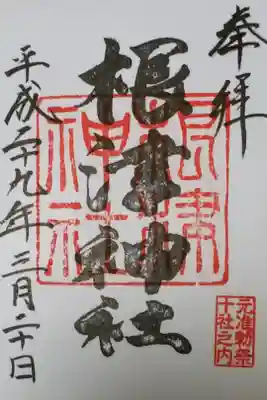 奉拝
根津神社
根津神社
平成二十九年三月二十日
元准勅祭
十社之内